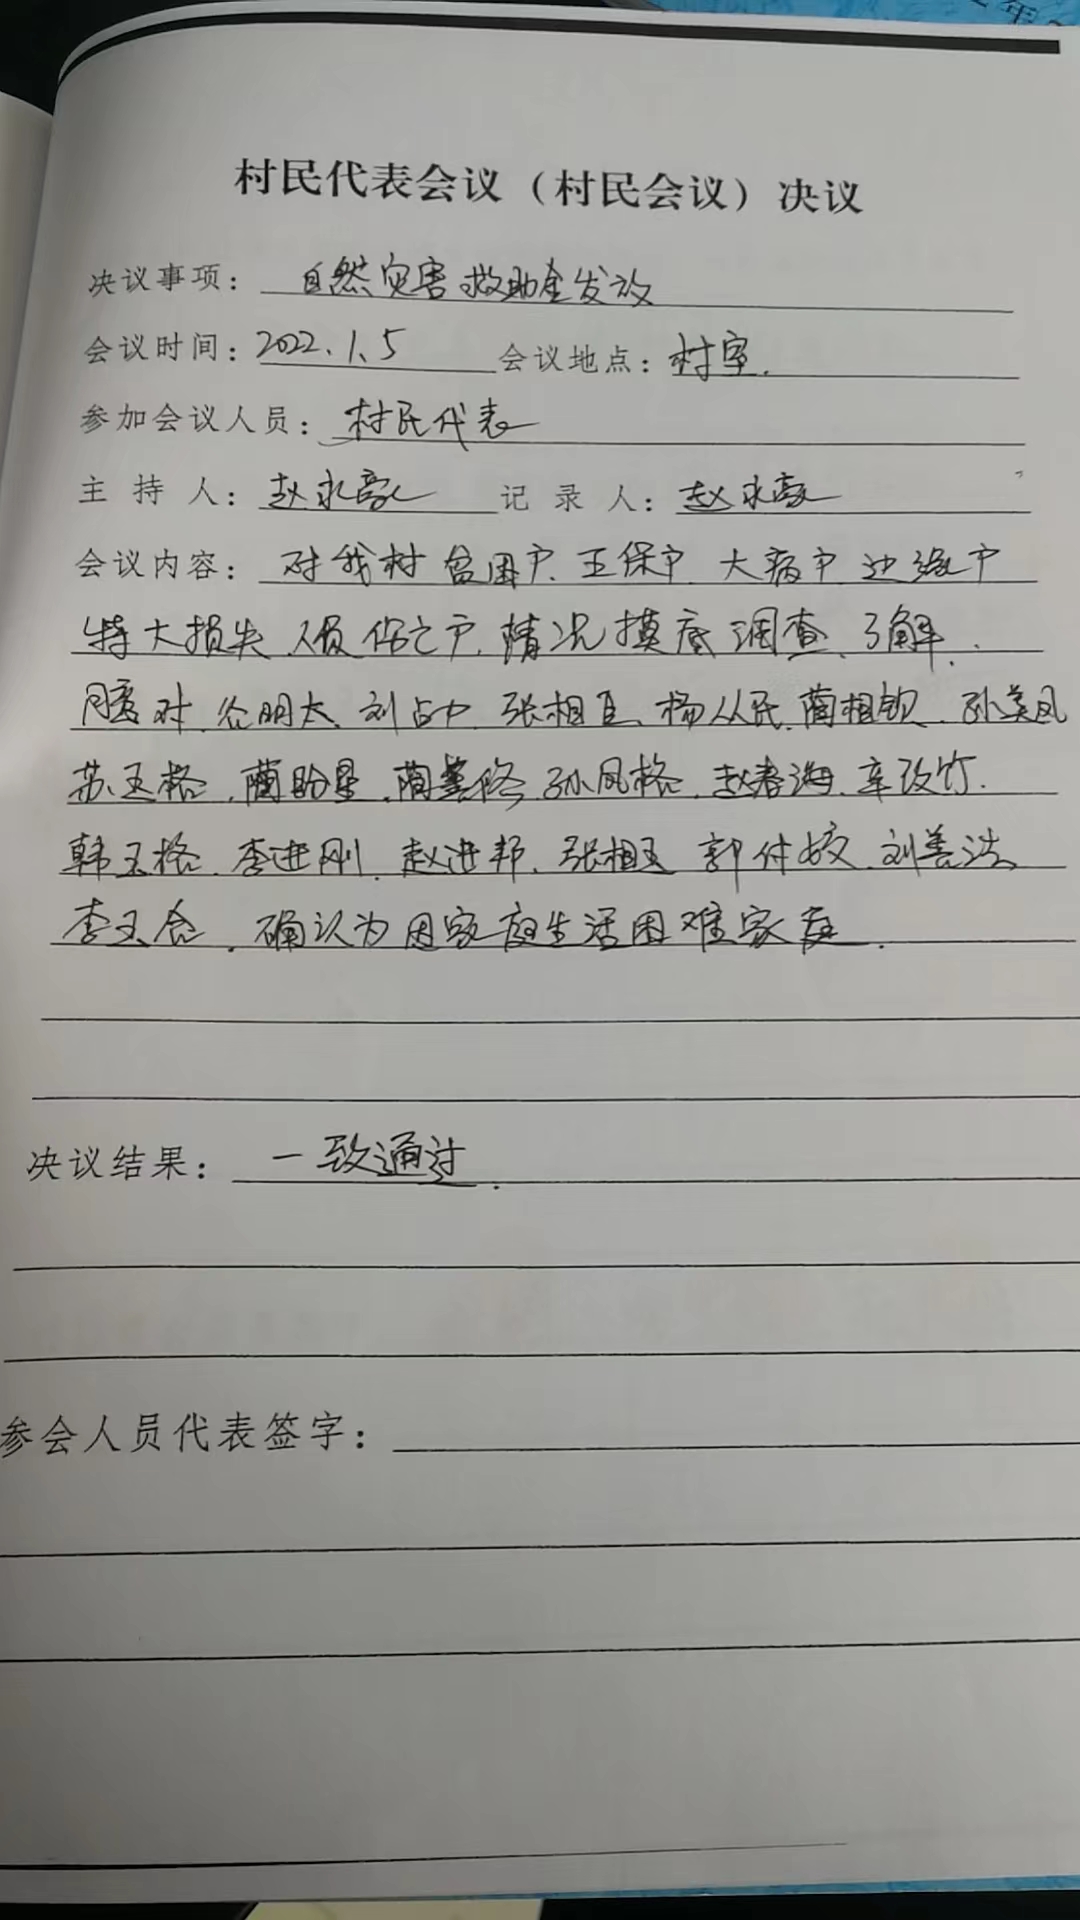 年
村民代表会议（村民会议）决议
决议事项：自然灾害救助金发放
会议时间：2022.1.5 会议地点：村室.
参加会议人员：村民代表
主持人：赵永豪 记录人：赵永豪
会议内容：对我村贫困户、五保户、大病户、边缘户
特大损失、人员伤亡户、情况摸底调查、了解.
对 明太、刘占力、张相臣、杨从民、蔺相钦、孙美凤
苏玉格、蔺盼星、蔺 修、孙凤格、赵春海、车改竹.
韩玉格、李进刚、赵进邦、张相玉 郭付姣、刘善法
李玉合、确认为因家庭生活困难家庭.
决议结果：一致通过.
参会人员代表签字：